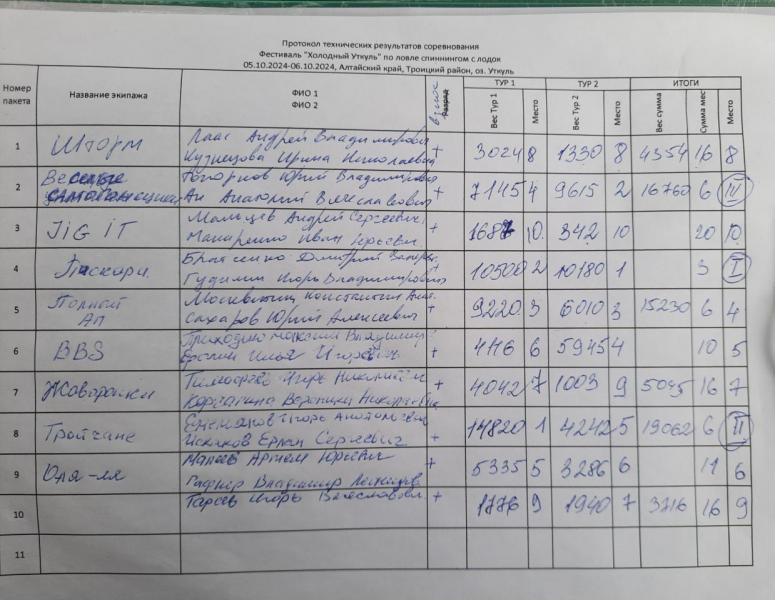 Протокол технических результатов соревнования
Фестиваль "Холодный Уткуль" по ловле спиннингом с лодок
05.10.2024-06.10.2024, Алтайский край, Троицкий район, оз. Уткуль
Номер пакета Название экипажа ФИО 1 ФИО 2 взнос Разряд ТУР 1 Вес Тур 1 Место ТУР 2 Вес Тур 2 Место ИТОГИ Вес сумма Сумма мес Место
1 Шторм Лаас Андрей Владимирович
Кузнецова Ирина Николаевна + 3024 8 1330 8 4354 16 8
2 Веселые Юрий Владимирович
Ан Анатолий Вячеславович + 7145 4 9615 2 16760 6 III
3 JiG iT Мальцев Андрей Сергеевич
Макаренко Иван Юрьевич + 10 342 10 20 10
4 Пискари Дмитрий
Гудилин Игорь Владимирович + 10500 2 10180 1 3 I
5 Полный Ап Константин
Сахаров Юрий Алексеевич + 9220 3 6010 3 15230 6 4
6 BBS Владимир
Илья Игоревич + 4116 6 5945 4 10 5
7 Жаворонки Тимофеев Игорь Николаевич
Вероника Николаевна + 4042 7 1003 9 5045 16 7
8 Тройчане Игорь Анатольевич
Искаков Ерлан Сергеевич + 14820 1 4242 5 19062 6 II
9 Оля-ля Малеев Артем Юрьевич +
Владимир 5335 5 3286 6 11 6
10 Игорь Вячеславович + 1776 9 1940 7 3716 16 9
11